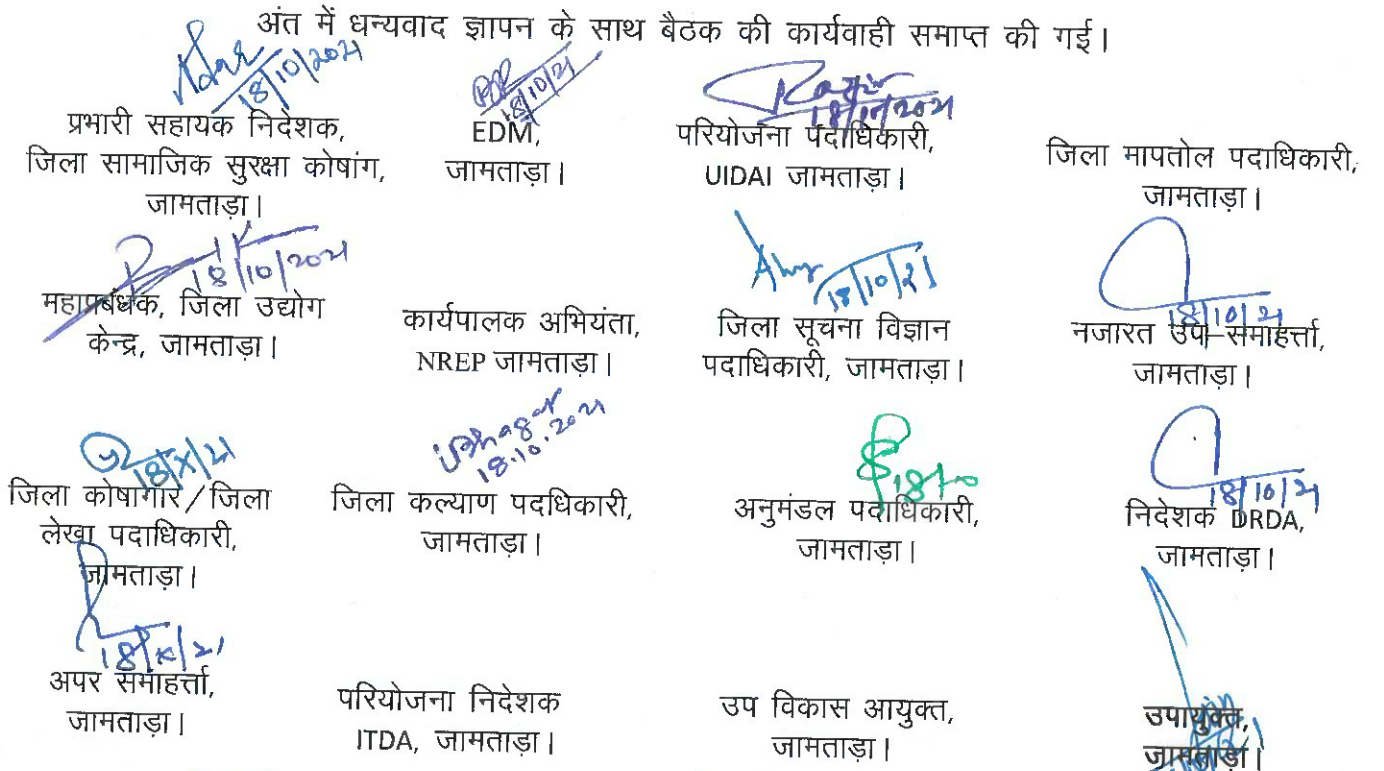 अंत में धन्यवाद ज्ञापन के साथ बैठक की कार्यवाही समाप्त की गई।
18/10/2021
प्रभारी सहायक निदेशक,
जिला सामाजिक सुरक्षा कोषांग,
जामताड़ा।
18/10/21
EDM,
जामताड़ा।
18/10/2021
परियोजना पदाधिकारी,
UIDAI जामताड़ा।
जिला मापतोल पदाधिकारी,
जामताड़ा।
18/10/2021
महाप्रबंधक, जिला उद्योग
केन्द्र, जामताड़ा।
कार्यपालक अभियंता,
NREP जामताड़ा।
18/10/21
जिला सूचना विज्ञान
पदाधिकारी, जामताड़ा।
18/10/21
नजारत उप-समाहर्त्ता,
जामताड़ा।
18/X/21
जिला कोषागार/जिला
लेखा पदाधिकारी,
जामताड़ा।
18.10.2021
जिला कल्याण पदधिकारी,
जामताड़ा।
अनुमंडल पदाधिकारी,
जामताड़ा।
18/10/21
निदेशक DRDA,
जामताड़ा।
18/X/21
अपर समाहर्त्ता,
जामताड़ा।
परियोजना निदेशक
ITDA, जामताड़ा।
उप विकास आयुक्त,
जामताड़ा।
उपायुक्त,
जामताड़ा।